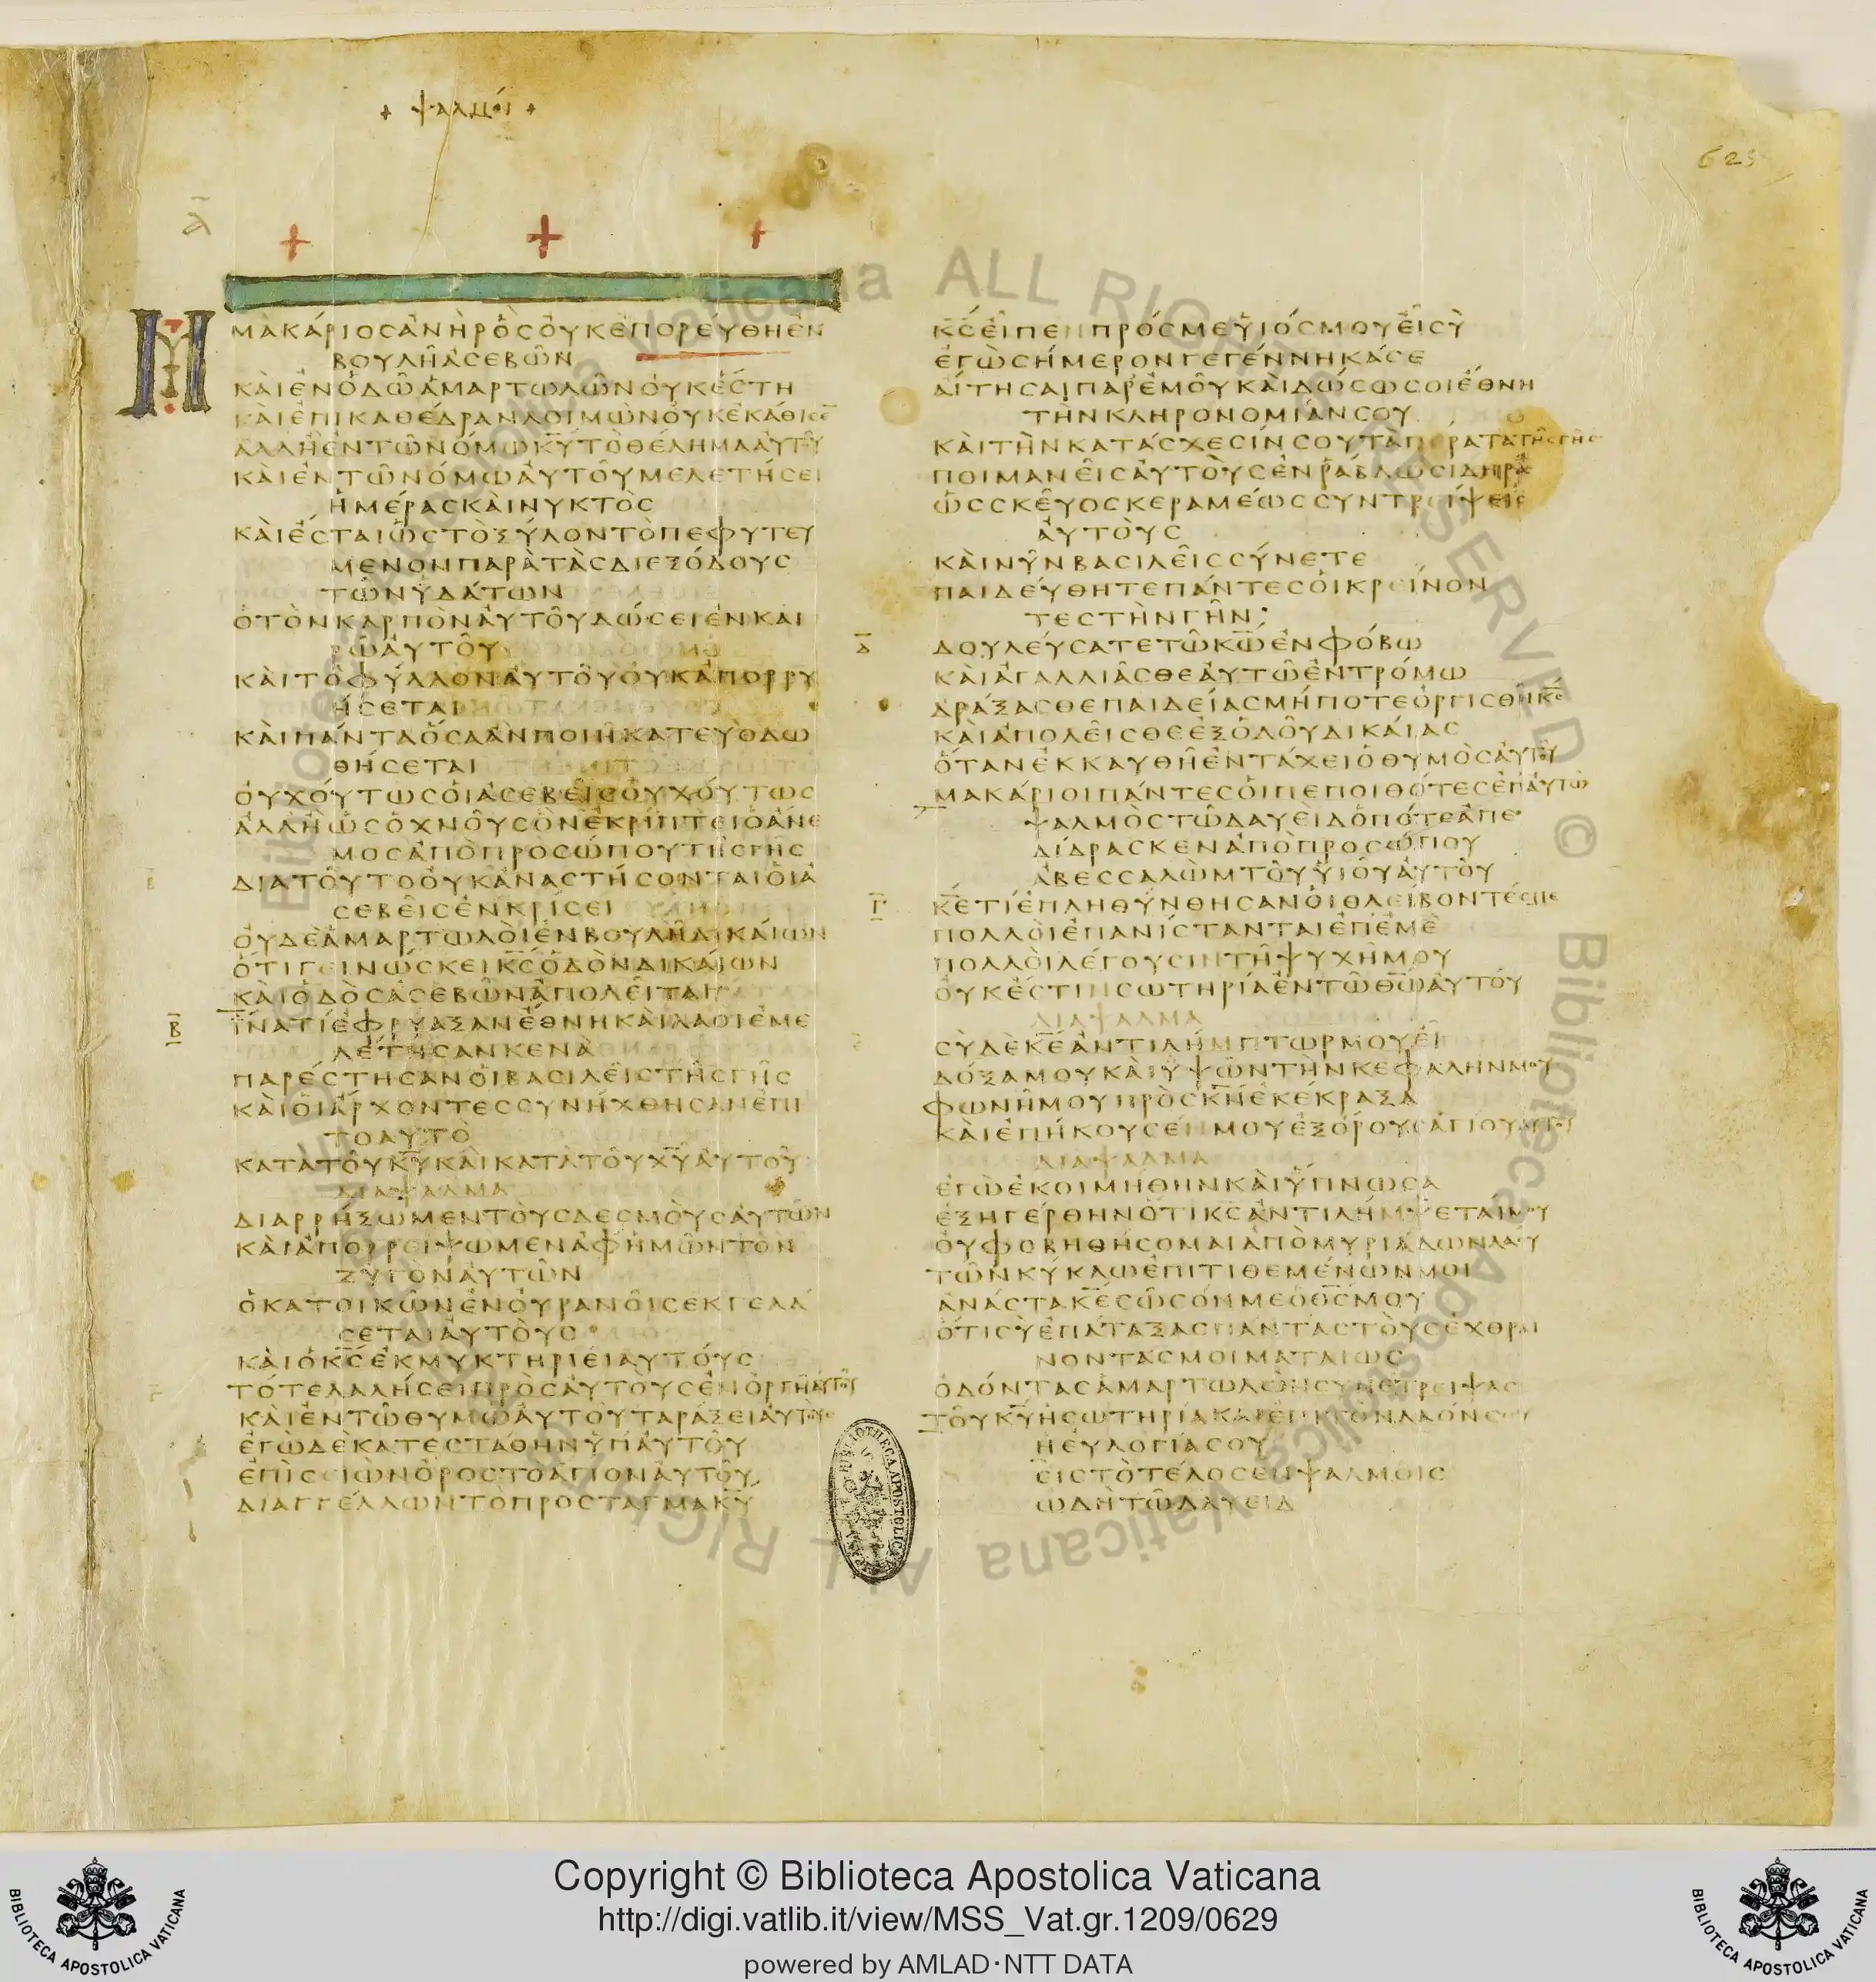 + ψαλμοί +
625
Α
ΜΑΚΑΡΙΟΣ ΑΝΗΡ ΟΣ ΟΥΚ ΕΠΟΡΕΥΘΗ ΕΝ
ΒΟΥΛΗ ΑΣΕΒΩΝ
ΚΑΙ ΕΝ ΟΔΩ ΑΜΑΡΤΩΛΩΝ ΟΥΚ ΕΣΤΗ
ΚΑΙ ΕΠΙ ΚΑΘΕΔΡΑΝ ΛΟΙΜΩΝ ΟΥΚ ΕΚΑΘΙΣΕ̅
ΑΛΛ Η ΕΝ ΤΩ ΝΟΜΩ Κ̅Υ̅ ΤΟ ΘΕΛΗΜΑ ΑΥΤΟΥ
ΚΑΙ ΕΝ ΤΩ ΝΟΜΩ ΑΥΤΟΥ ΜΕΛΕΤΗΣΕΙ
ΗΜΕΡΑΣ ΚΑΙ ΝΥΚΤΟΣ
ΚΑΙ ΕΣΤΑΙ ΩΣ ΤΟ ΞΥΛΟΝ ΤΟ ΠΕΦΥΤΕΥ
ΜΕΝΟΝ ΠΑΡΑ ΤΑΣ ΔΙΕΞΟΔΟΥΣ
ΤΩΝ ΥΔΑΤΩΝ
Ο ΤΟΝ ΚΑΡΠΟΝ ΑΥΤΟΥ ΔΩΣΕΙ ΕΝ ΚΑΙ
ΡΩ ΑΥΤΟΥ
ΚΑΙ ΤΟ ΦΥΛΛΟΝ ΑΥΤΟΥ ΟΥΚ ΑΠΟΡΡΥ
ΗΣΕΤΑΙ
ΚΑΙ ΠΑΝΤΑ ΟΣΑ ΑΝ ΠΟΙΗ ΚΑΤΕΥΟΔΩ
ΘΗΣΕΤΑΙ
ΟΥΧ ΟΥΤΩΣ ΟΙ ΑΣΕΒΕΙΣ ΟΥΧ ΟΥΤΩΣ
ΑΛΛ Η ΩΣ Ο ΧΝΟΥΣ ΟΝ ΕΚΡΙΠΤΕΙ Ο ΑΝΕ
ΜΟΣ ΑΠΟ ΠΡΟΣΩΠΟΥ ΤΗΣ ΓΗΣ
ΔΙΑ ΤΟΥΤΟ ΟΥΚ ΑΝΑΣΤΗΣΟΝΤΑΙ ΟΙ Α
ΣΕΒΕΙΣ ΕΝ ΚΡΙΣΕΙ
ΟΥΔΕ ΑΜΑΡΤΩΛΟΙ ΕΝ ΒΟΥΛΗ ΔΙΚΑΙΩΝ
ΟΤΙ ΓΕΙΝΩΣΚΕΙ Κ̅Σ̅ ΟΔΟΝ ΔΙΚΑΙΩΝ
ΚΑΙ ΟΔΟΣ ΑΣΕΒΩΝ ΑΠΟΛΕΙΤΑΙ
Β
ΙΝΑ ΤΙ ΕΦΡΥΑΞΑΝ ΕΘΝΗ ΚΑΙ ΛΑΟΙ ΕΜΕ
ΛΕΤΗΣΑΝ ΚΕΝΑ
ΠΑΡΕΣΤΗΣΑΝ ΟΙ ΒΑΣΙΛΕΙΣ ΤΗΣ ΓΗΣ
ΚΑΙ ΟΙ ΑΡΧΟΝΤΕΣ ΣΥΝΗΧΘΗΣΑΝ ΕΠΙ
ΤΟ ΑΥΤΟ
ΚΑΤΑ ΤΟΥ Κ̅Υ̅ ΚΑΙ ΚΑΤΑ ΤΟΥ Χ̅Υ̅ ΑΥΤΟΥ
ΔΙΑΨΑΛΜΑ
ΔΙΑΡΡΗΞΩΜΕΝ ΤΟΥΣ ΔΕΣΜΟΥΣ ΑΥΤΩΝ
ΚΑΙ ΑΠΟΡΡΕΙΨΩΜΕΝ ΑΦ ΗΜΩΝ ΤΟΝ
ΖΥΓΟΝ ΑΥΤΩΝ
Ο ΚΑΤΟΙΚΩΝ ΕΝ ΟΥΡΑΝΟΙΣ ΕΚΓΕΛΑ
ΣΕΤΑΙ ΑΥΤΟΥΣ
ΚΑΙ Ο Κ̅Σ̅ ΕΚΜΥΚΤΗΡΙΕΙ ΑΥΤΟΥΣ
ΤΟΤΕ ΛΑΛΗΣΕΙ ΠΡΟΣ ΑΥΤΟΥΣ ΕΝ ΟΡΓΗ ΑΥΤΟΥ
ΚΑΙ ΕΝ ΤΩ ΘΥΜΩ ΑΥΤΟΥ ΤΑΡΑΞΕΙ ΑΥΤΟΥΣ
ΕΓΩ ΔΕ ΚΑΤΕΣΤΑΘΗΝ ΥΠ ΑΥΤΟΥ
ΕΠΙ ΣΕΙΩΝ ΟΡΟΣ ΤΟ ΑΓΙΟΝ ΑΥΤΟΥ
ΔΙΑΓΓΕΛΛΩΝ ΤΟ ΠΡΟΣΤΑΓΜΑ Κ̅Υ̅
Κ̅Σ̅ ΕΙΠΕΝ ΠΡΟΣ ΜΕ ΥΙΟΣ ΜΟΥ ΕΙ ΣΥ
ΕΓΩ ΣΗΜΕΡΟΝ ΓΕΓΕΝΝΗΚΑ ΣΕ
ΑΙΤΗΣΑΙ ΠΑΡ ΕΜΟΥ ΚΑΙ ΔΩΣΩ ΣΟΙ ΕΘΝΗ
ΤΗΝ ΚΛΗΡΟΝΟΜΙΑΝ ΣΟΥ
ΚΑΙ ΤΗΝ ΚΑΤΑΣΧΕΣΙΝ ΣΟΥ ΤΑ ΠΕΡΑΤΑ ΤΗΣ ΓΗΣ
ΠΟΙΜΑΝΕΙΣ ΑΥΤΟΥΣ ΕΝ ΡΑΒΔΩ ΣΙΔΗΡΑ
ΩΣ ΣΚΕΥΟΣ ΚΕΡΑΜΕΩΣ ΣΥΝΤΡΕΙΨΕΙΣ
ΑΥΤΟΥΣ
ΚΑΙ ΝΥΝ ΒΑΣΙΛΕΙΣ ΣΥΝΕΤΕ
ΠΑΙΔΕΥΘΗΤΕ ΠΑΝΤΕΣ ΟΙ ΚΡΕΙΝΟΝ
ΤΕΣ ΤΗΝ ΓΗΝ
ΔΟΥΛΕΥΣΑΤΕ ΤΩ Κ̅Ω̅ ΕΝ ΦΟΒΩ
ΚΑΙ ΑΓΑΛΛΙΑΣΘΕ ΑΥΤΩ ΕΝ ΤΡΟΜΩ
ΔΡΑΞΑΣΘΕ ΠΑΙΔΕΙΑΣ ΜΗΠΟΤΕ ΟΡΓΙΣΘΗ Κ̅Σ̅
ΚΑΙ ΑΠΟΛΕΙΣΘΕ ΕΞ ΟΔΟΥ ΔΙΚΑΙΑΣ
ΟΤΑΝ ΕΚΚΑΥΘΗ ΕΝ ΤΑΧΕΙ Ο ΘΥΜΟΣ ΑΥΤΟΥ
ΜΑΚΑΡΙΟΙ ΠΑΝΤΕΣ ΟΙ ΠΕΠΟΙΘΟΤΕΣ ΕΠ ΑΥΤΩ
ΨΑΛΜΟΣ ΤΩ ΔΑΥΕΙΔ ΟΠΟΤΕ ΑΠΕ
ΔΙΔΡΑΣΚΕΝ ΑΠΟ ΠΡΟΣΩΠΟΥ
ΑΒΕΣΣΑΛΩΜ ΤΟΥ ΥΙΟΥ ΑΥΤΟΥ
Γ
Κ̅Ε̅ ΤΙ ΕΠΛΗΘΥΝΘΗΣΑΝ ΟΙ ΘΛΕΙΒΟΝΤΕΣ ΜΕ
ΠΟΛΛΟΙ ΕΠΑΝΙΣΤΑΝΤΑΙ ΕΠ ΕΜΕ
ΠΟΛΛΟΙ ΛΕΓΟΥΣΙΝ ΤΗ ΨΥΧΗ ΜΟΥ
ΟΥΚ ΕΣΤΙΝ ΣΩΤΗΡΙΑ ΕΝ ΤΩ Θ̅Ω̅ ΑΥΤΟΥ
ΔΙΑΨΑΛΜΑ
ΣΥ ΔΕ Κ̅Ε̅ ΑΝΤΙΛΗΜΠΤΩΡ ΜΟΥ ΕΙ
ΔΟΞΑ ΜΟΥ ΚΑΙ ΥΨΩΝ ΤΗΝ ΚΕΦΑΛΗΝ ΜΟΥ
ΦΩΝΗ ΜΟΥ ΠΡΟΣ Κ̅Ν̅ ΕΚΕΚΡΑΞΑ
ΚΑΙ ΕΠΗΚΟΥΣΕΝ ΜΟΥ ΕΞ ΟΡΟΥΣ ΑΓΙΟΥ ΑΥΤΟΥ
ΔΙΑΨΑΛΜΑ
ΕΓΩ ΕΚΟΙΜΗΘΗΝ ΚΑΙ ΥΠΝΩΣΑ
ΕΞΗΓΕΡΘΗΝ ΟΤΙ Κ̅Σ̅ ΑΝΤΙΛΗΜΨΕΤΑΙ ΜΟΥ
ΟΥ ΦΟΒΗΘΗΣΟΜΑΙ ΑΠΟ ΜΥΡΙΑΔΩΝ ΛΑΟΥ
ΤΩΝ ΚΥΚΛΩ ΕΠΙΤΙΘΕΜΕΝΩΝ ΜΟΙ
ΑΝΑΣΤΑ Κ̅Ε̅ ΣΩΣΟΝ ΜΕ Ο Θ̅Σ̅ ΜΟΥ
ΟΤΙ ΣΥ ΕΠΑΤΑΞΑΣ ΠΑΝΤΑΣ ΤΟΥΣ ΕΧΘΡΑΙ
ΝΟΝΤΑΣ ΜΟΙ ΜΑΤΑΙΩΣ
ΟΔΟΝΤΑΣ ΑΜΑΡΤΩΛΩΝ ΣΥΝΕΤΡΕΙΨΑΣ
ΤΟΥ Κ̅Υ̅ Η ΣΩΤΗΡΙΑ ΚΑΙ ΕΠΙ ΤΟΝ ΛΑΟΝ ΣΟΥ
Η ΕΥΛΟΓΙΑ ΣΟΥ
ΕΙΣ ΤΟ ΤΕΛΟΣ ΕΝ ΨΑΛΜΟΙΣ
ΩΔΗ ΤΩ ΔΑΥΕΙΔ
Copyright © Biblioteca Apostolica Vaticana
http://digi.vatlib.it/view/MSS_Vat.gr.1209/0629
powered by AMLAD·NTT DATA
BIBLIOTECA APOSTOLICA VATICANA
BIBLIOTECA APOSTOLICA VATICANA